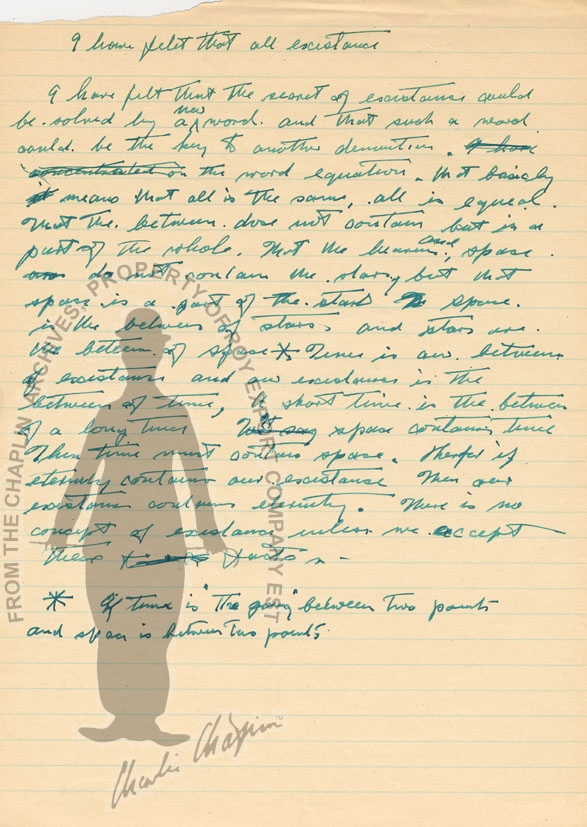 I have felt that all existance
I have felt that the secret of existance could
be solved by a new word. and that such a word
could be the key to another demention. I have
concentrated on the word equation. that basicly
it means that all is the same, all is equal.
That the between dose not contain but is a
part of the whole. That the heavens, and space
do not contain the stars, but that
space is a part of the stars. space
is the between of stars and stars are
the between of space * Time is our between
of existance and our existance is the
between of time, A short time is the between
of a long time space contains time
Then time must contain space. Therfor if
eternity contains our existance Then our
existance contains eternity. There is no
concept of existance unless we accept
these facts
* If time is "The going" between two points
and space is between two points
FROM THE CHAPLIN ARCHIVES, PROPERTY OF ROY EXPORT COMPANY EST
Charlie Chaplin™